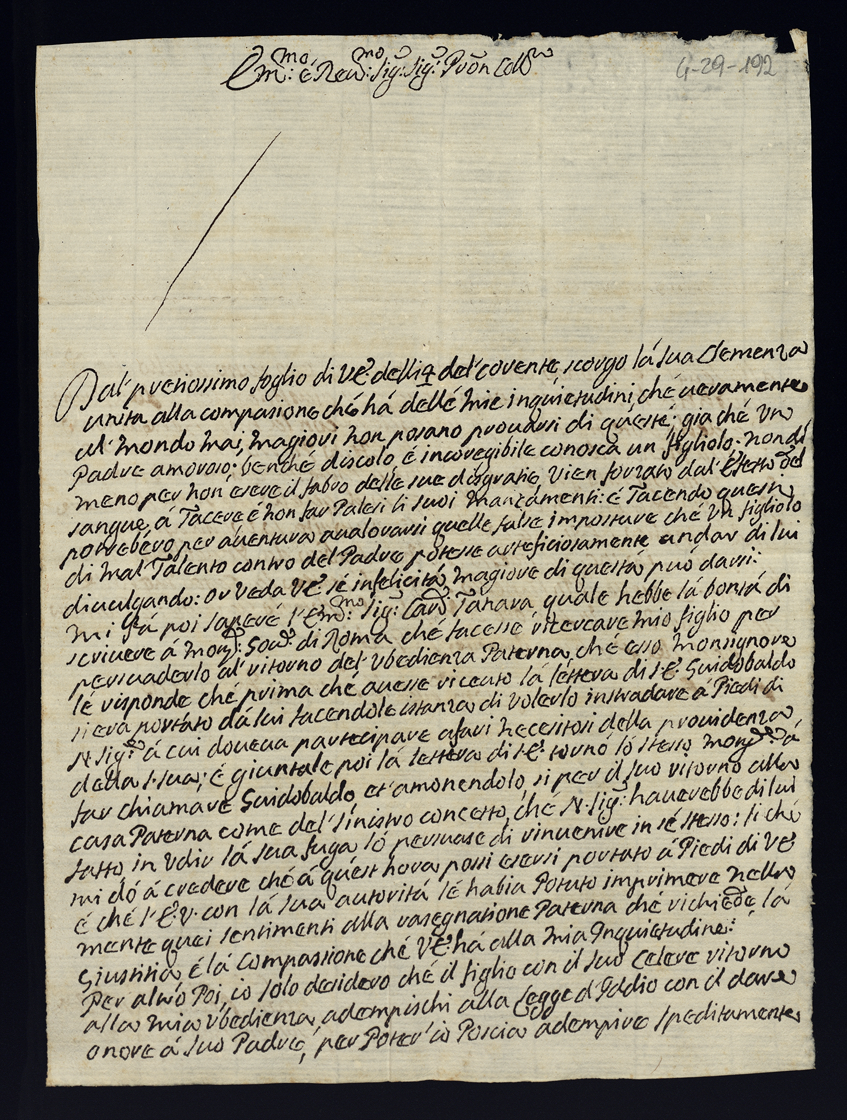 Em.mo é Reu.mo Sig: Sig: Pron Coll.mo
G-29-192
Dal' pretiossimo foglio di VE: delli 9 del' corente scorgo lá sua Clemenza
unita alla compasione ché há delle mie inquietudini, ché ueramente
al' mondo mai magiori non posano prouarsi di queste; giá ché vn
Padre amoroso: benché discolo é incoregibile conosca un figliolo: nondi
meno per non esere il fabro delle sue disgratie, vien forzato dal' istesso del
sangue, á Tacere é non far Palesi li suoi mancamenti: é Tacendo questi
potrebéro per auentura aualorarsi quelle false imposture ché vn figliolo
di mal Talento contro del Padre potesse arteficiosamente andar di lui
diuulgando: or veda VE sé infelicitá magiore di questa può darsi:
mi fá poi saperé l'Em.mo Sig: Car.l Tanara quale hebbe lá bontá di
scriuere á Mon.r Gou.r di Roma ché facesse ricercare mio figlio per
persuaderlo al' ritorno del' vbedienza Paterna, ché esso monsignore
lé risponde ché prima ché auesse riceuto lá lettera di S:E: Guidobaldo
si era portato dá lui facendole istanza di volerlo instradare á Piedi di
N. Sig.re á cui doueua partecipare afari necesitosi della prouidenza
della S. sua; é giuntale poi lá lettera di S:E: tornó ló stesso Mon.re á
far chiamare Guidobaldo, et' amonendolo, si per il suo ritorno alla
casa Paterna come del' sinistro concetto, ché N. Sig: hauerebbe di lui
fatto, in vdir lá sua fuga ló persuase di rinuenire in sé stesso: si ché
mi dó á credere ché á quest' hora possi esersi portato á Piedi di VE
é ché l'E.V. con lá sua autoritá lé habia Potuto imprimere nella
mente quei sentimenti alla rasegnatione Paterna ché richiede lá
Giustitia, é lá Compassione ché VE há alla mia Inquietudine:
Per altro Poi, io solo desidero ché il figlio con il suo celere ritorno
alla mia vbedienza, adempischi alla Legge d'Iddio con il dare
onore á suo Padre, per Poter' io Poscia adempire speditamente